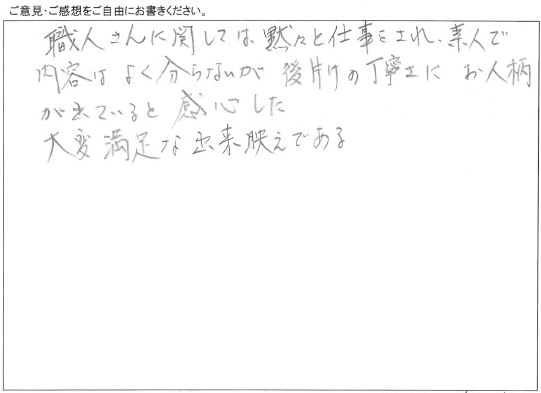 ご意見・ご感想をご自由にお書きください。
職人さんに関しては、黙々と仕事をされ、素人で
内容はよく分らないが 後片けの丁寧さに お人柄
が出ていると 感心した
大変満足な出来映えである